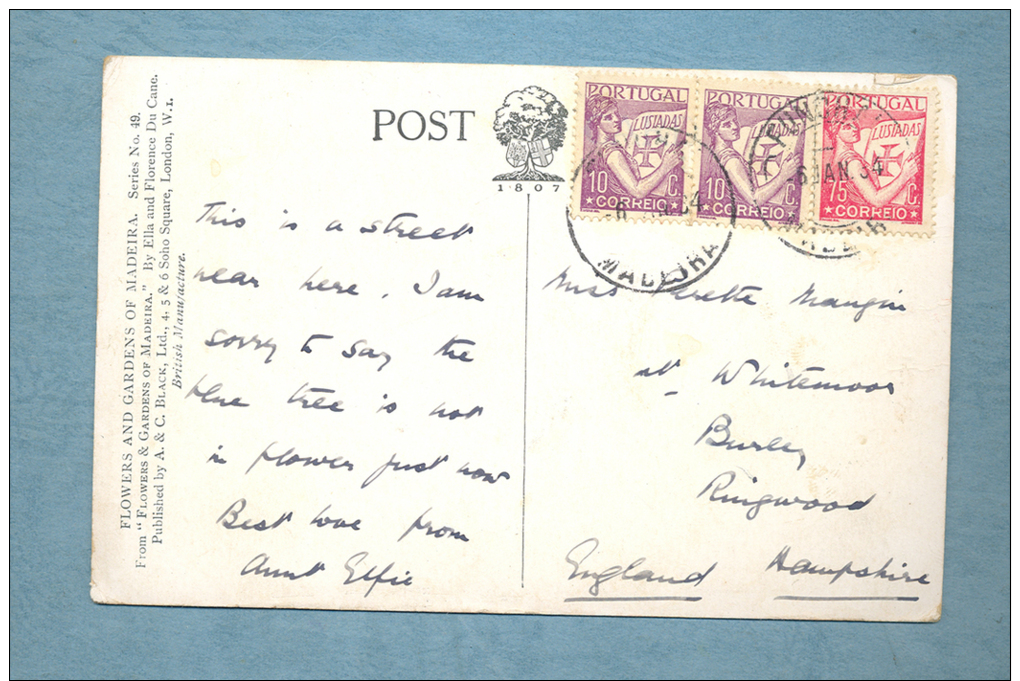 FLOWERS AND GARDENS OF MADEIRA. Series No. 49.
From "FLOWERS & GARDENS OF MADEIRA." By Ella and Florence Du Cane.
Published by A. & C. BLACK, Ltd., 4, 5 & 6 Soho Square, London, W.1.
British Manufacture.
POST
1807
PORTUGAL
LUSIADAS
10 C.
CORREIO
PORTUGAL
LUSIADAS
10 C.
CORREIO
PORTUGAL
LUSIADAS
75 C.
CORREIO
MADEIRA
-6 JAN. 34
This is a street
near here. I am
sorry to say the
blue tree is not
in flower just now
Best love from
Aunt Elfie
Miss Mangin
at Whitemoor
Burley
Ringwood
England Hampshire